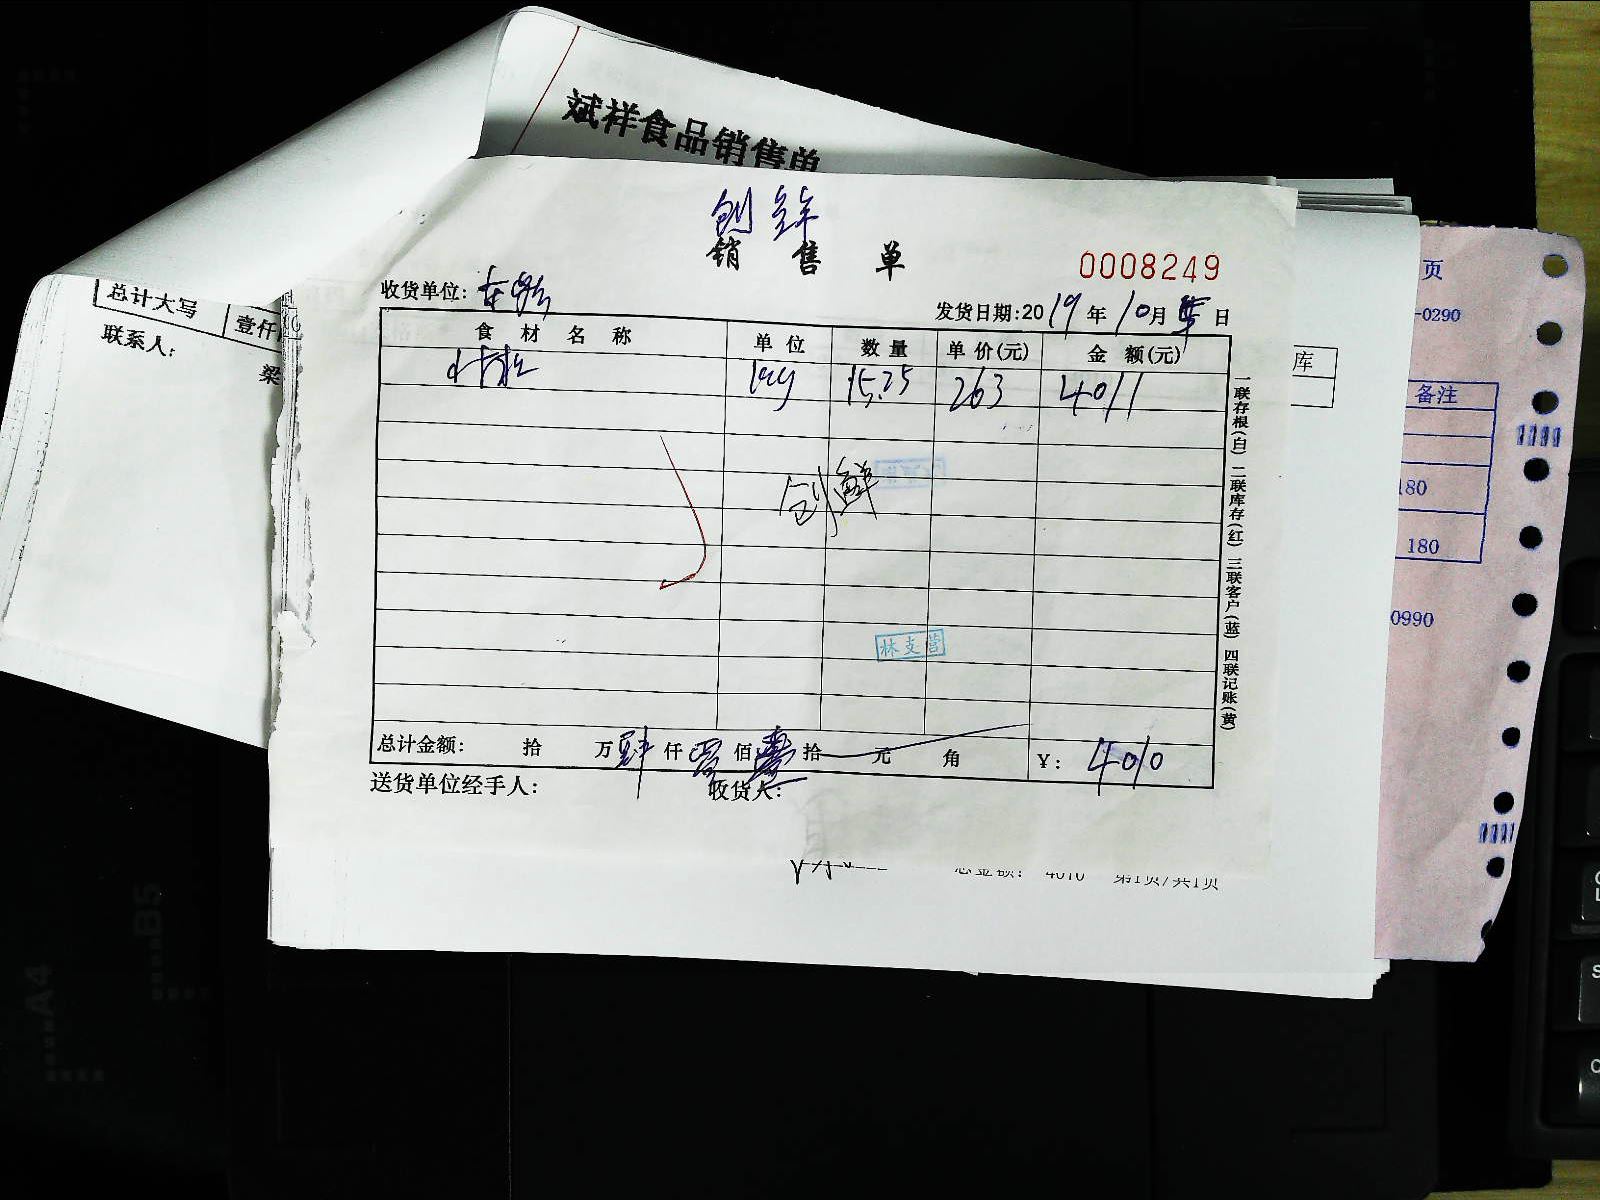 斌祥食品销售单
创鲜
销 售 单
0008249
收货单位:
发货日期:2019年10月 日
食 材 名 称 单 位 数 量 单 价(元) 金 额(元)
kg 15.25 263 4011
创鲜
林支营
总计金额: 拾 万 肆 仟 零 佰 壹 拾 元 角 ¥: 4010
送货单位经手人: 收货人:
一联存根(白) 二联库存(红) 三联客户(蓝) 四联记账(黄)
总计大写 壹仟
联系人: 梁
总金额: 4010 第1页/共1页
页
-0290
库
备注
180
180
0990
B5
A4